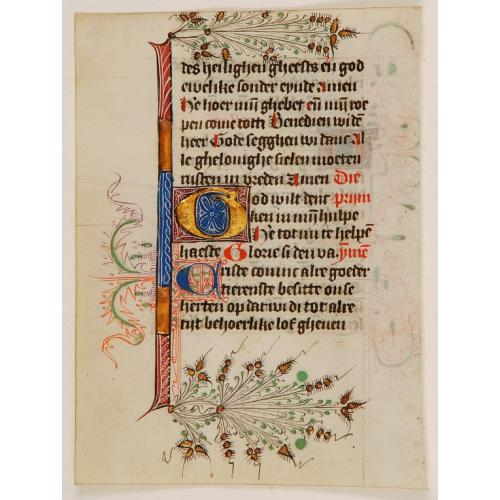 des heilighen gheests en̄ god
ewelike sonder eynde Amen
He hoer mijn̄ ghebet en̄ mijn̄ roe
pen come totti Benedien wi dē
heer Gode segghen wi danc Al
le ghelouighe sielen moeten
rusten in vreden Amen Die
God wilt dencken in mijn̄ hulpe prijm
He tot mi te helpē
haeste Glorie si den va ymne
Criste comine alre goeder
tierenste besitte onse
herten op dat wi di tot alre
tijt behoerlike lof gheuen